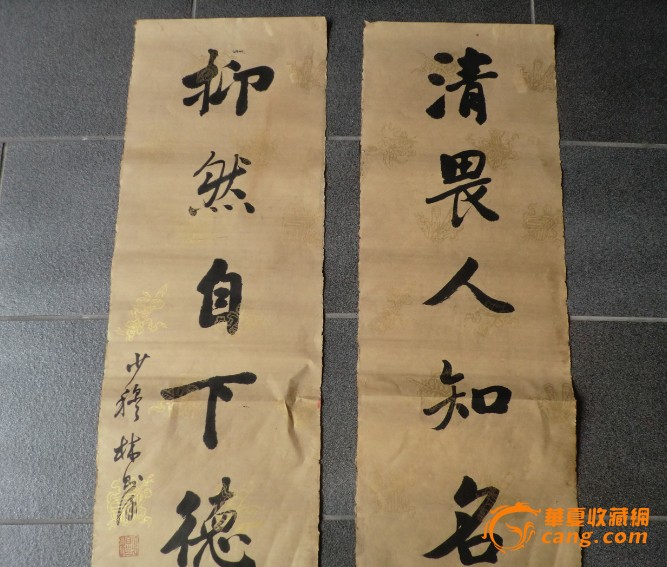 清畏人知名
抑然自下德
少穆林則徐
華夏收藏網
cang.com